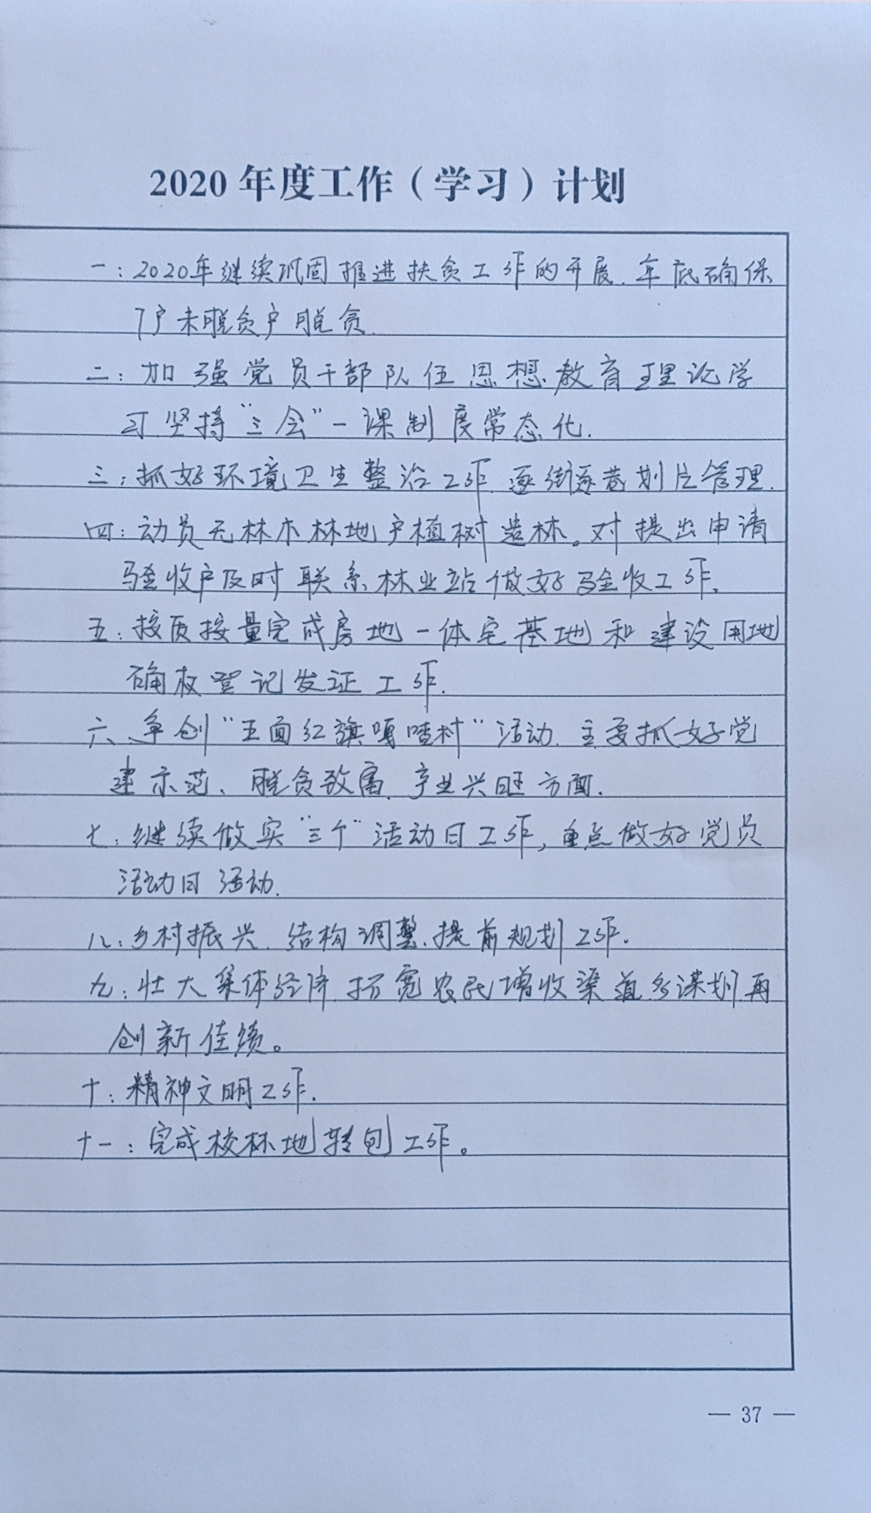 2020 年度工作（学习）计划
一：2020年继续巩固推进扶贫工作的开展．年底确保
7户未脱贫户脱贫．
二：加强党员干部队伍思想教育理论学
习坚持“三会”一课制度常态化．
三：抓好环境卫生整治工作．逐街逐巷划片管理．
四：动员无林木林地户植树造林。对提出申请
验收户及时联系林业站做好验收工作．
五：按质按量完成房地一体宅基地和建设用地
确权登记发证工作．
六、争创“五面红旗嘎喳村”活动．主要抓好党
建示范、脱贫致富．产业兴旺方面．
七：继续做实“三个”活动日工作，重点做好党员
活动日活动．
八：乡村振兴．结构调整．提前规划工作．
九：壮大集体经济．拓宽农民增收渠道多谋划再
创新佳绩。
十：精神文明工作．
十一：完成校林地转包工作。
— 37 —